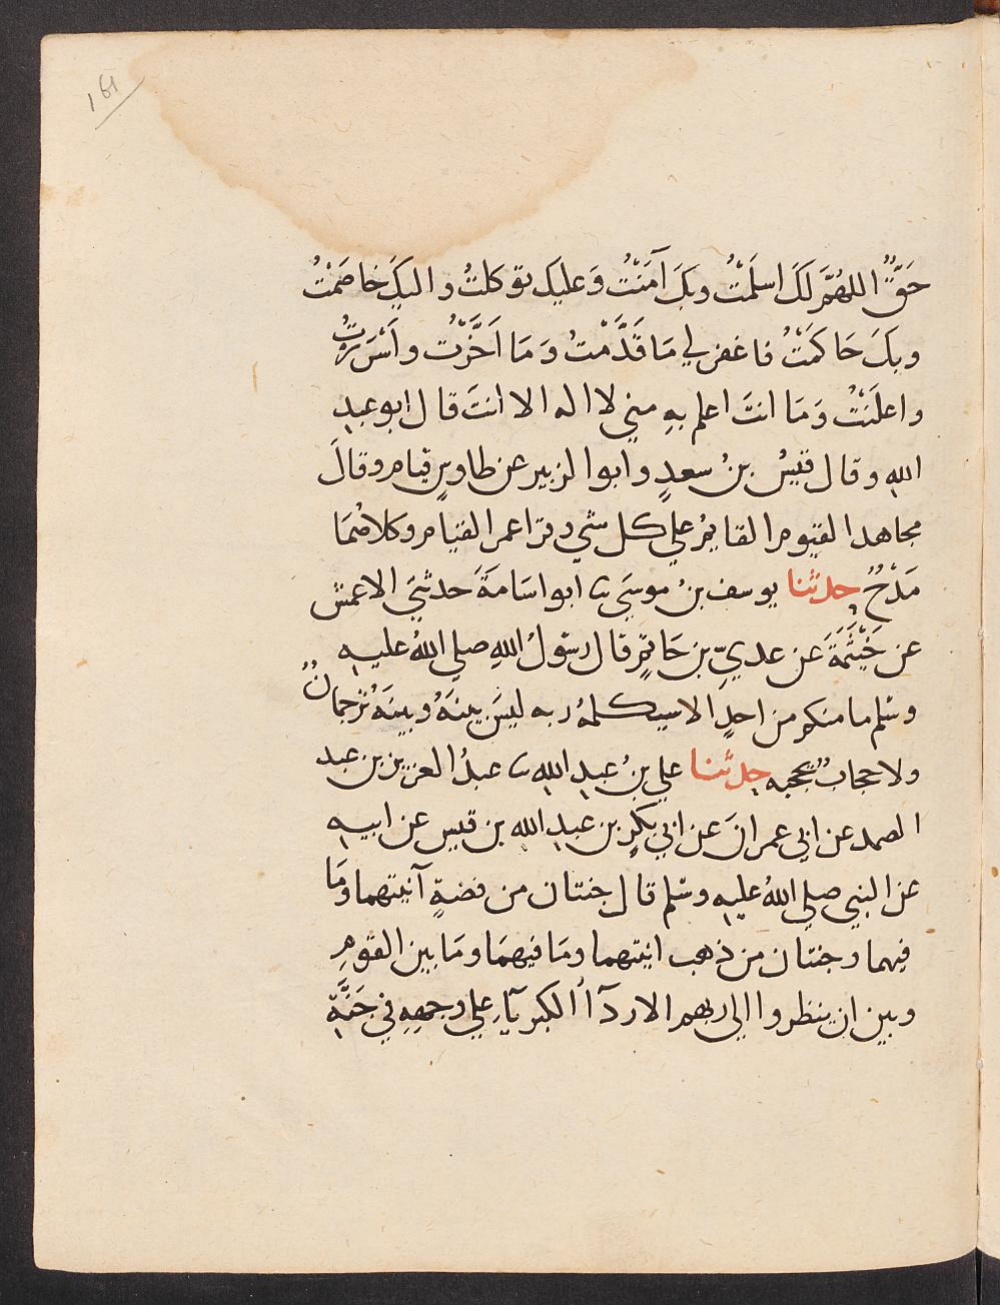 161
حَقٌّ اللهُمَّ لَكَ اسلَمْتُ وبكَ آمَنْتُ وَعليك توكلتُ واليكَ خاصَمْتُ
وبكَ حَاكَمْتُ فاغفر لي مَا قَدَّمْتُ وَمَا اَخَّرْت واَسْرَرْتُ
واعلَنْتُ وَمَا انتَ اعلم بهِ مني لا اله الا انتَ قال ابو عبدِ
اللهِ وقال قيسُ بنُ سعدٍ وابو الزبير عن طاوسٍ قيام وقالَ
مجاهد القيوم القايمُ علي كل شي وقرا عمر القيام وكلاهُمَا
مَدْحٌ حدثنا يوسف بنُ موسَي نا ابو اسَامَةَ حدثني الاعمش
عن خَيْثَمَةَ عن عديِّ بنِ حَاتمٍ قال رسُولُ اللهِ صلي اللهُ عليهِ
وسلم ما منكم من احدٍ الا سيكلمهُ ربه ليسَ بينهُ وبينَهُ ترجمانٌ
ولا حجابٌ يحجبه حدثنا علي بنُ عبدِ اللهِ نا عبدُ العزيز بن عبد
الصمد عن ابي عمرانَ عن ابي بكرٍ بن عبدِ اللهِ بن قيس عن ابيهِ
عن النبي صلي اللهُ عليهِ وسلم قال جنتان من فضةٍ آنيتهما ومَا
فيهما وجنتان من ذهب انيتهما ومَا فيهمَا ومَا بين القومِ
وبين ان ينظروا الي ربهم الا ردآأ الكبريآءِ علي وجههِ في جَنَّةِ